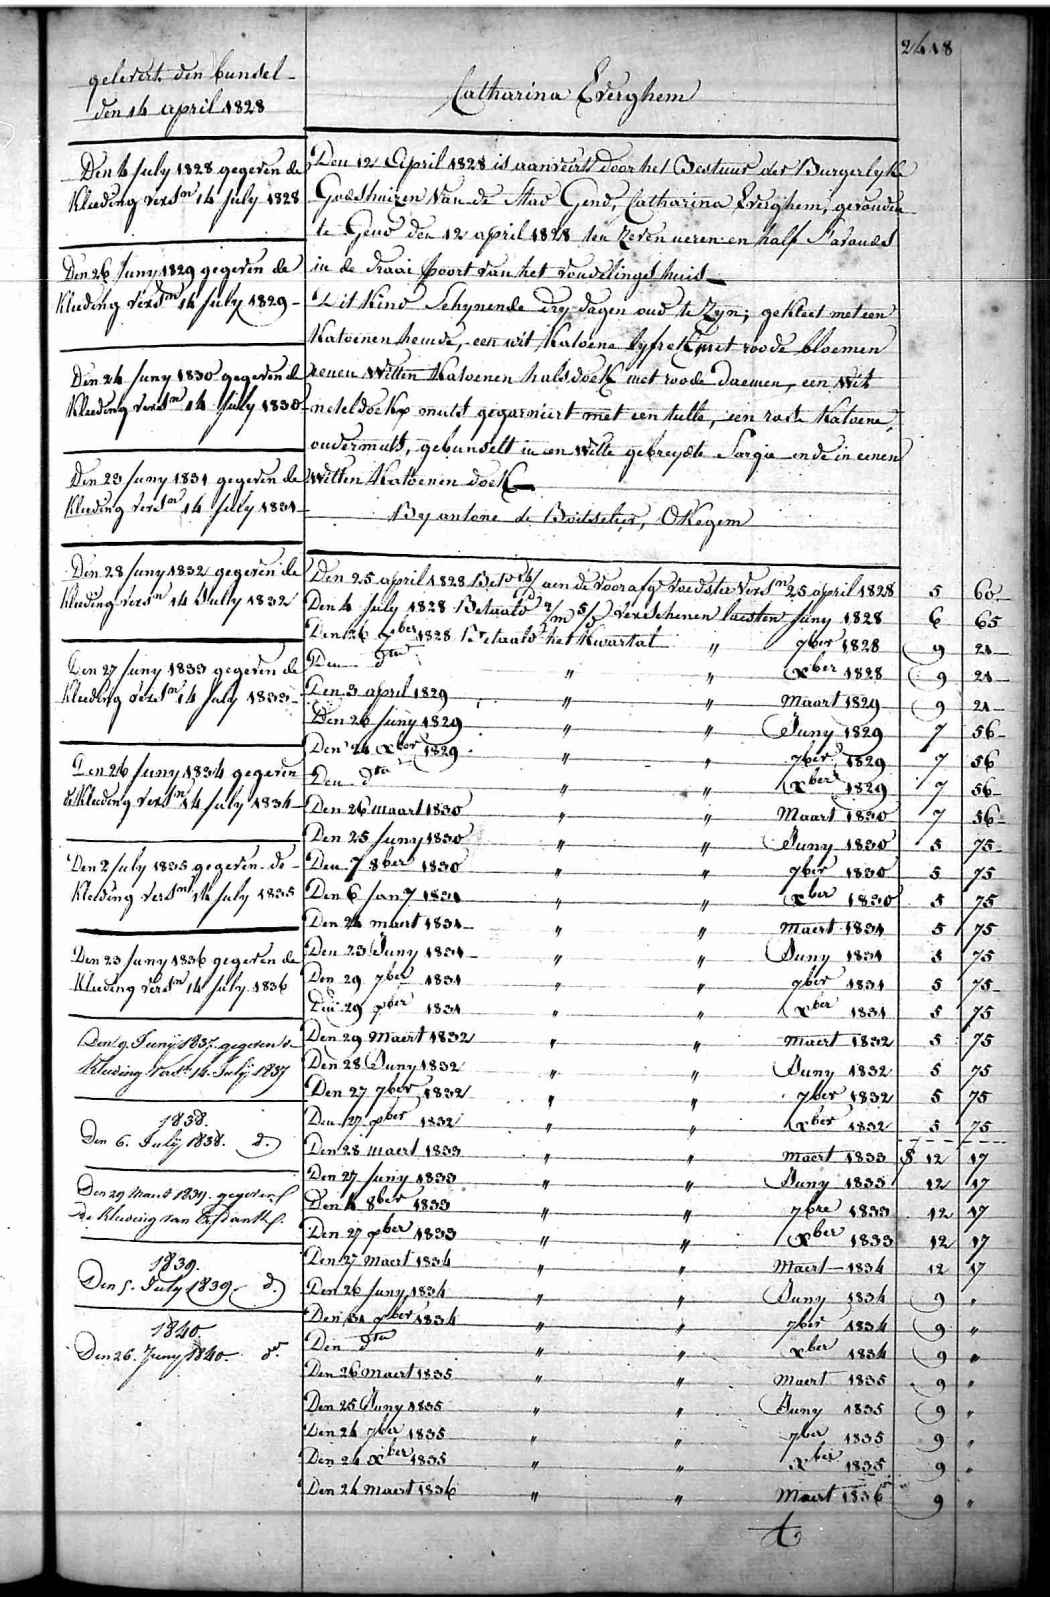 2418
gelevert den bundel
den 14 april 1828
Catharina Everghem
Den 4 July 1828 gegeven de
Kleeding versn 14 July 1828
Den 26 Juny 1829 gegeven de
Kleeding versn 14 July 1829
Den 24 Juny 1830 gegeven de
Kleeding versn 14 July 1830
Den 23 Juny 1831 gegeven de
Kleeding versn 14 July 1831
Den 28 Juny 1832 gegeven de
Kleeding versn 14 July 1832
Den 27 Juny 1833 gegeven de
Kleeding versn 14 July 1833
Den 26 Juny 1834 gegeven
de Kleeding versn 14 July 1834
Den 2 July 1835 gegeven de
Kleeding versn 14 July 1835
Den 23 Juny 1836 gegeven de
Kleeding versn 14 July 1836
Den 9. Junij 1837 gegeven de
Kleeding versn 14. Julij 1837
1838.
Den 6. Julij 1838. d.
Den 29 Maart 1839. gegeven
de Kleeding van
1839.
Den 5. July 1839. d.
1840
Den 26. Juny 1840. do
Den 12 April 1828 is aanveirt door het Bestuur der Burgerlyke
Godshuizen van de Stad Gend, Catharina Everghem, gevonden
te Gend den 12 april 1828 ten zeven ueren en half S'avonds
in de draai poort van het vondelingshuis
Dit Kind Schynende dry dagen oud te Zyn; gekleet met een
Katoenen hemde, een wit Katoene lyfrok met roode bloemen
eenen Witten Katoenen halsdoek met roode daemen, een Wit
neteldoekx muts gegarniert met een tulle, een raste Katoene,
ondermuts, gebundelt in een Witte gebreyde Sargie ende in eenen
Witten Katoenen doek
By antone de Boitselier, Okegem
Den 25 april 1828 Bet. aen de voorafg voedster versn 25 april 1828 5 60
Den 4 July 1828 Betaald 2/m 5/d verschenen laesten Juny 1828 6 65
Den 26 xber 1828 betaald het Kwartal " 7ber 1828 9 21
Den dto " " xber 1828 9 21
Den 3 april 1829 " " Maart 1829 9 21
Den 26 Juny 1829 " " Juny 1829 7 56
Den 24 xber 1829 " " 7ber 1829 7 56
Den dto " " xber 1829 7 56
Den 26 maart 1830 " " Maart 1830 7 56
Den 25 Juny 1830 " " Juny 1830 5 75
Den 7 8ber 1830 " " 7ber 1830 5 75
Den 6 Jany 1831 " " xber 1830 5 75
Den 24 maert 1831 " " Maert 1831 5 75
Den 23 Juny 1831 " " Juny 1831 5 75
Den 29 7ber 1831 " " 7ber 1831 5 75
Den 29 xber 1831 " " xber 1831 5 75
Den 29 Maert 1832 " " Maert 1832 5 75
Den 28 Juny 1832 " " Juny 1832 5 75
Den 27 7ber 1832 " " 7ber 1832 5 75
Den 27 xber 1832 " " xber 1832 5 75
Den 28 maert 1833 " " Maert 1833 12 17
Den 27 Juny 1833 " " Juny 1833 12 17
Den 4 8ber 1833 " " 7bre 1833 12 17
Den 27 xber 1833 " " xber 1833 12 17
Den 27 Maert 1834 " " Maert 1834 12 17
Den 26 Juny 1834 " " Juny 1834 9 "
Den 31 xber 1834 " " 7ber 1834 9 "
Den dto " " xber 1834 9 "
Den 26 Maert 1835 " " Maert 1835 9 "
Den 25 Juny 1835 " " Juny 1835 9 "
Den 24 7ber 1835 " " 7ber 1835 9 "
Den 24 xber 1835 " " xber 1835 9 "
Den 24 Maert 1836 " " Maert 1836 9 "